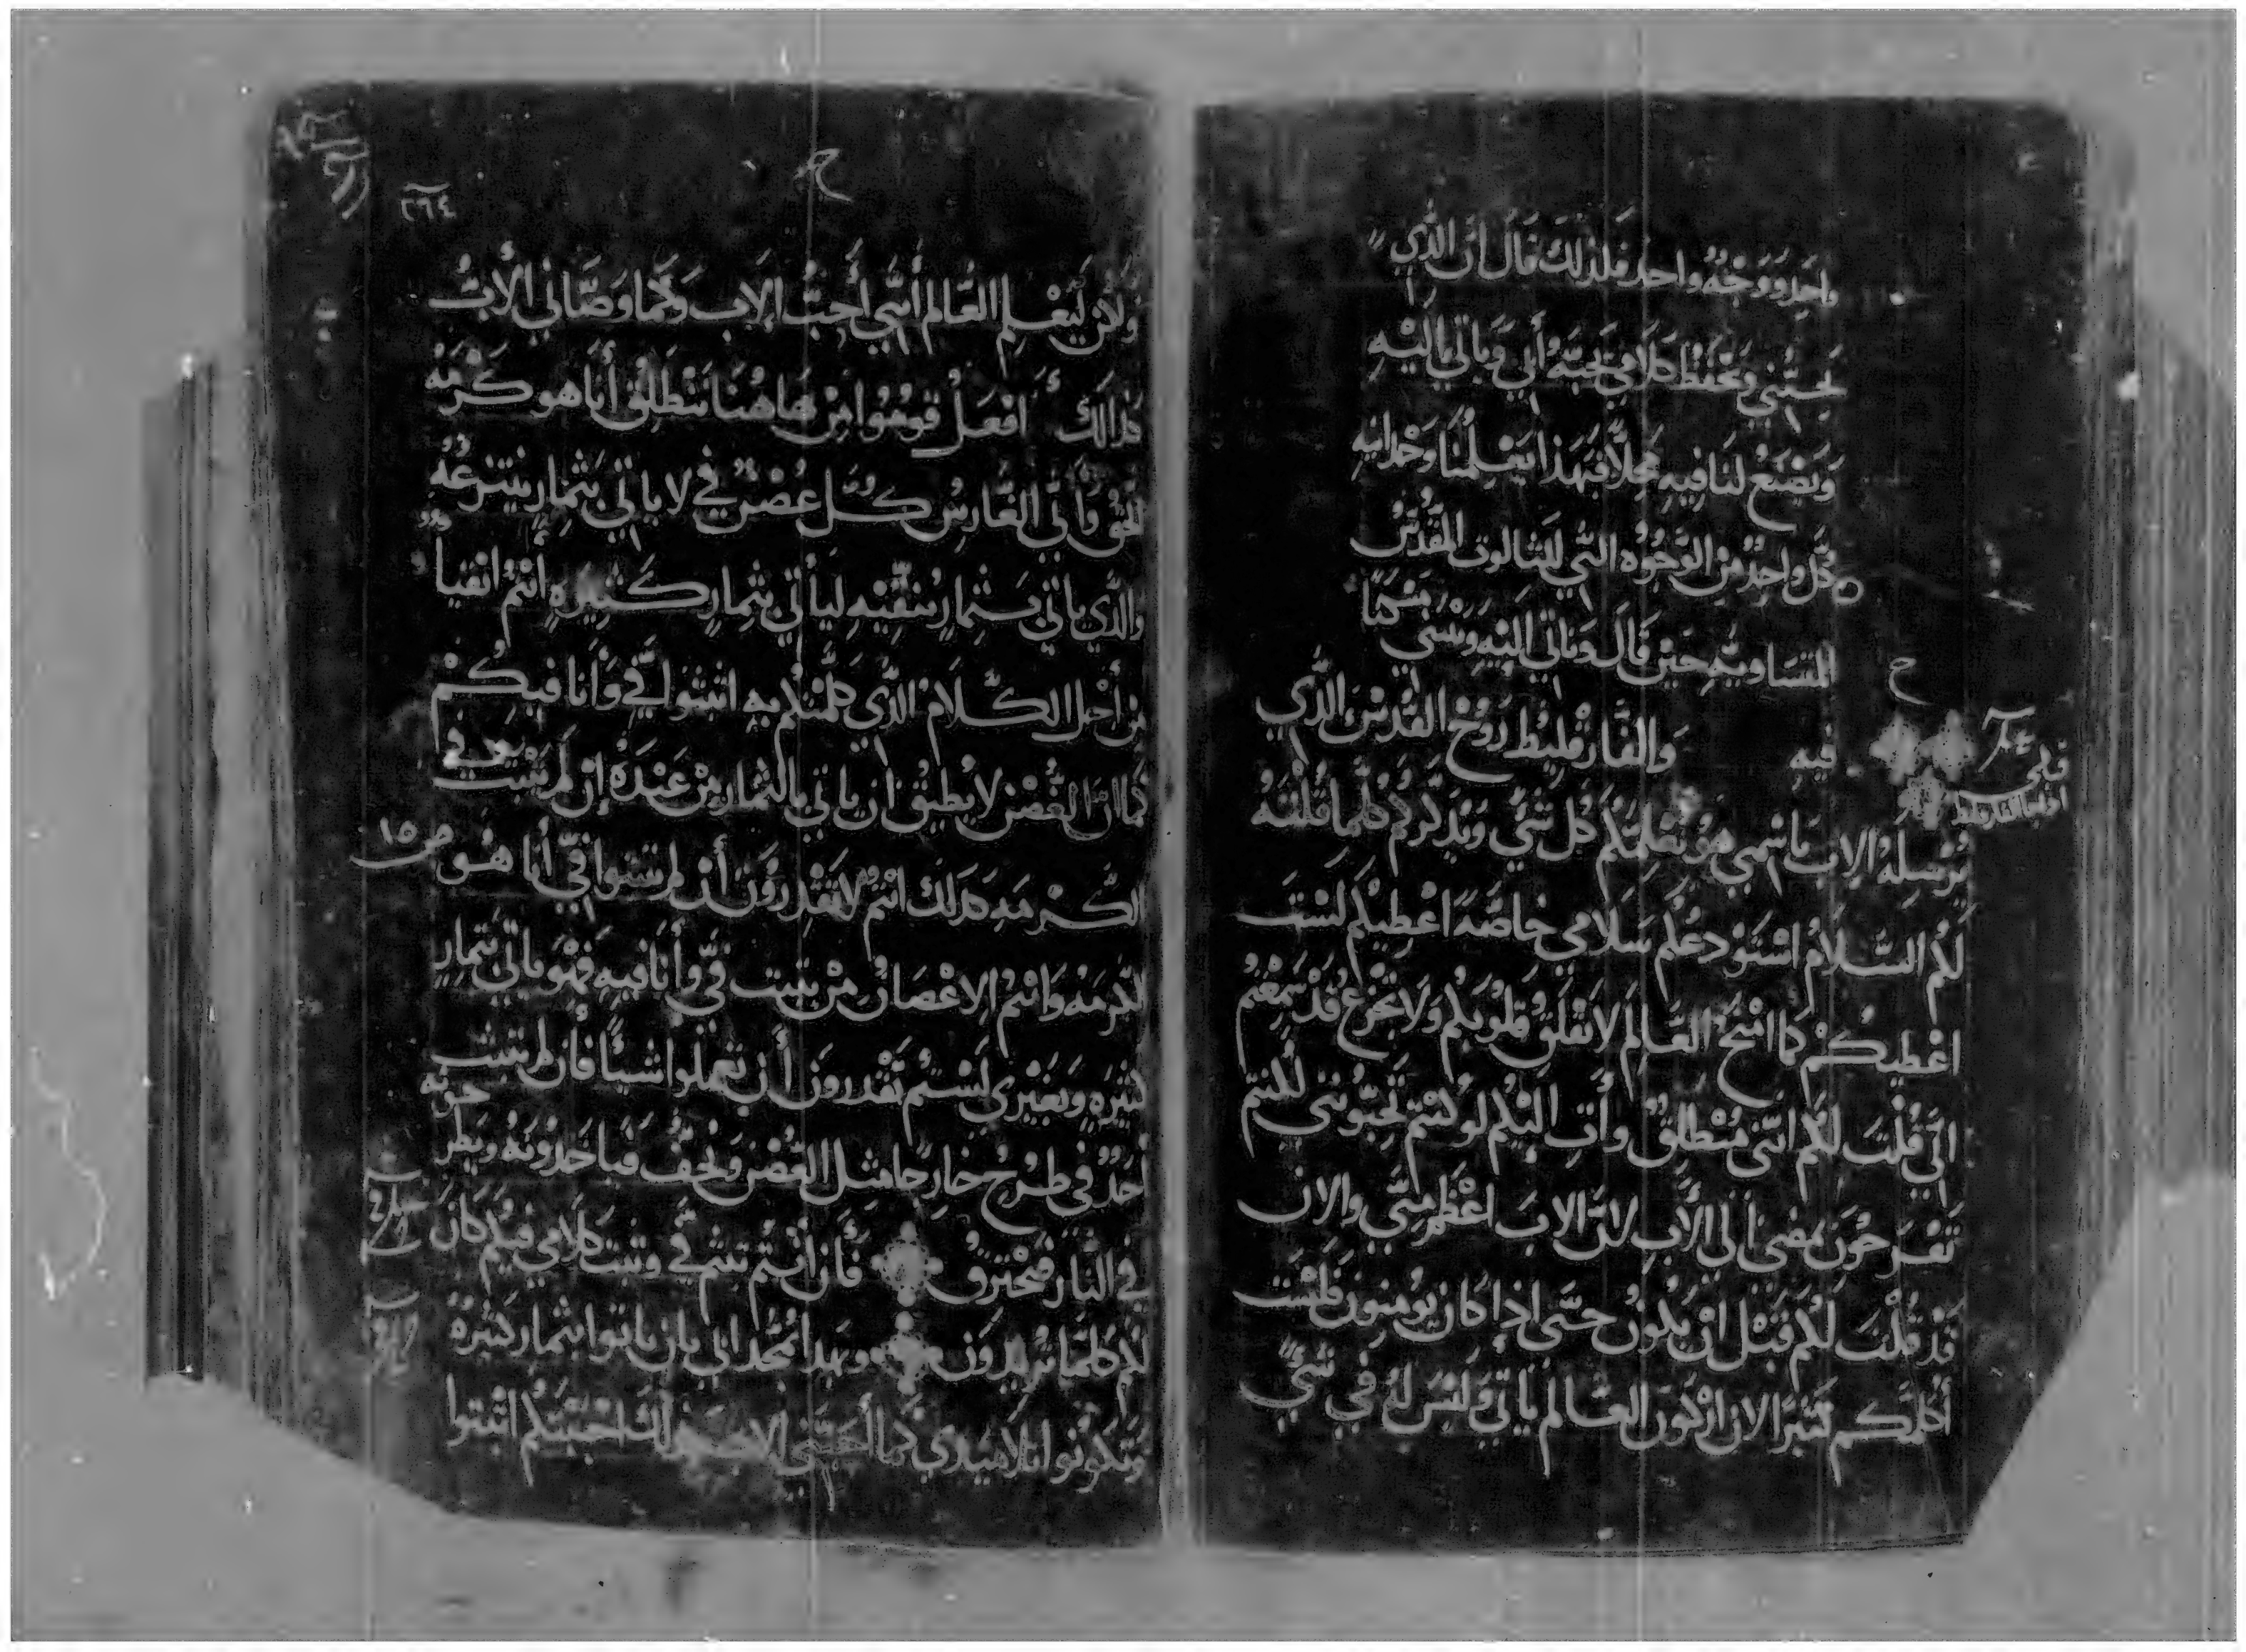 واحد ووجه واحد فلذلك قال ان الذي
يحبني ويحفظ كلامي يحبه أبي وياتي اليه
ويصنع لنا فيه محلا فبهذا يعلمنا وحدانيه
كل واحد من الوجوه التي للثالوث المقدس
المتساويه حين قال وناتي اليه ونسى مسكنا
فيه والفارقليط روح القدس الذي
يرسله الاب باسمي هو يعلمكم كل شي ويذكركم كلما قلته
لكم السلام استودعكم سلامي خاصة اعطيكم لست
اعطيكم كما امنح العالم لا تقلق قلوبكم ولا تجزع قد سمعتم
اني قلت لكم انني منطلق وأت اليكم لو كنتم تحبونني لكنتم
تفرحون بمضى الى الأب لان الاب اعظم مني والان
قد قلت لكم قبل ان يكون حتى اذا كان تومنون ولست
أكلمكم كثيرا الان اركون العالم ياتي وليس له في شي
٢٦٤
ولكن ليعلم العالم أنني أحب الاب وكما وصاني الأب
كذالك أفعل قوموا من هاهنا ننطلق أنا هو كرمة
الحق وابي الغارس كل غصن في لا ياتي بثمار ينتزعه
والذي ياتي بثمار ينقيه لياتي بثمار كثيره انتم انقيا
من أجل الكلام الذي كلمتكم به اثبتوا في وأنا فيكم
كما ان الغصن لا يطيق أن ياتي بالثمار من عنده إن لم يثبت في
الكرمه كذلك انتم لا تقدرون أن لم تثبتوا في أنا هو
الكرمه وانتم الاغصان من يثبت في وأنا فيه فهو ياتي بثمار
كثيره وبغيري لستم تقدرون أن تعملوا شيئا فان لم يثبت
أحد في طرح خارجا مثل الغصن ويجف فياخذونه ويطرحونه
في النار فيحترق فأن أنتم ثبتم في وثبت كلامي فيكم كان
لكم كلما تريدون وبهذا يمجد ابي بان ياتوا بثمار كثيرة
وتكونوا تلاميذي كما أحبني الاب كذلك احببتكم اثبتوا